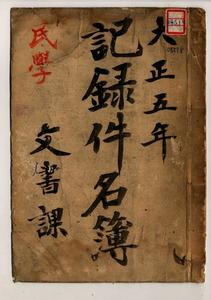 大正五年
記録件名簿
文書課
民学